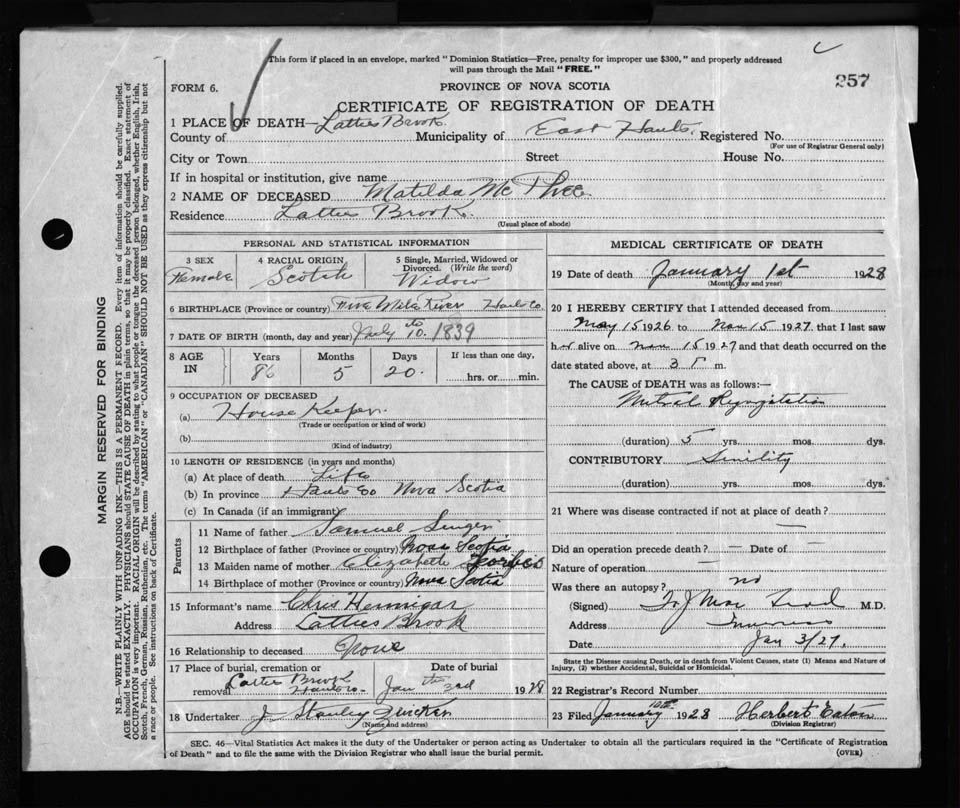 This form if placed in an envelope, marked "Dominion Statistics—Free, penalty for improper use $300," and properly addressed
will pass through the Mail "FREE."
257
FORM 6.
PROVINCE OF NOVA SCOTIA
CERTIFICATE OF REGISTRATION OF DEATH
1 PLACE OF DEATH— Latties Brook.
County of Municipality of East Hants. Registered No.
(For use of Registrar General only)
City or Town Street House No.
If in hospital or institution, give name
2 NAME OF DECEASED Matilda Mc Phee
Residence Latties Brook.
(Usual place of abode)
PERSONAL AND STATISTICAL INFORMATION
3 SEX
Female
4 RACIAL ORIGIN
Scotch
5 Single, Married, Widowed or
Divorced. (Write the word)
Widow
6 BIRTHPLACE (Province or country) Five Mile River Hants Co.
7 DATE OF BIRTH (month, day and year) July 10. 1839
8 AGE IN
Years Months Days If less than one day,
86 5 20. hrs. or min.
9 OCCUPATION OF DECEASED
(a) House Keeper.
(Trade or occupation or kind of work)
(b)
(Kind of industry)
10 LENGTH OF RESIDENCE (in years and months)
(a) At place of death Life
(b) In province Hants Co Nova Scotia
(c) In Canada (if an immigrant)
Parents
11 Name of father Samuel
12 Birthplace of father (Province or country) Nova Scotia
13 Maiden name of mother Elizabeth
14 Birthplace of mother (Province or country) Nova Scotia
15 Informant's name Chris Hennigar
Address Latties Brook
16 Relationship to deceased None
17 Place of burial, cremation or
removal Brook
Hants Co.
Date of burial
Jan 1928
18 Undertaker J Stanley
(Name and address)
MEDICAL CERTIFICATE OF DEATH
19 Date of death January 1st 1928
(Month, day and year)
20 I HEREBY CERTIFY that I attended deceased from
May 15 1926 to Nov 15 1927, that I last saw
her alive on Nov 15 1927 and that death occurred on the
date stated above, at 3 P m.
The CAUSE of DEATH was as follows:—
Mitral Regurgitation
(duration) 5 yrs. mos. dys.
CONTRIBUTORY Senility
(duration) yrs. mos. dys.
21 Where was disease contracted if not at place of death?
—
Did an operation precede death? — Date of —
Nature of operation —
Was there an autopsy? no
(Signed) M.D.
Address
Date Jan 3/27.
State the Disease causing Death, or in death from Violent Causes, state (1) Means and Nature of
Injury, (2) whether Accidental, Suicidal or Homicidal.
22 Registrar's Record Number
23 Filed January 10th 1928 Herbert Eaton
(Division Registrar)
SEC. 46—Vital Statistics Act makes it the duty of the Undertaker or person acting as Undertaker to obtain all the particulars required in the "Certificate of Registration
of Death" and to file the same with the Division Registrar who shall issue the burial permit.
(OVER)
MARGIN RESERVED FOR BINDING
N.B.—WRITE PLAINLY WITH UNFADING INK—THIS IS A PERMANENT RECORD. Every item of information should be carefully supplied.
AGE should be stated EXACTLY. PHYSICIANS should STATE CAUSE OF DEATH in plain terms, so that it may be properly classified. Exact statement of
OCCUPATION is very important. RACIAL ORIGIN will be described by stating to what people or tongue the deceased person belonged, whether English, Irish,
Scotch, French, German, Russian, Ruthenian, etc. The terms "AMERICAN" or "CANADIAN" SHOULD NOT BE USED as they express citizenship but not
a race or people. See instructions on back of Certificate.